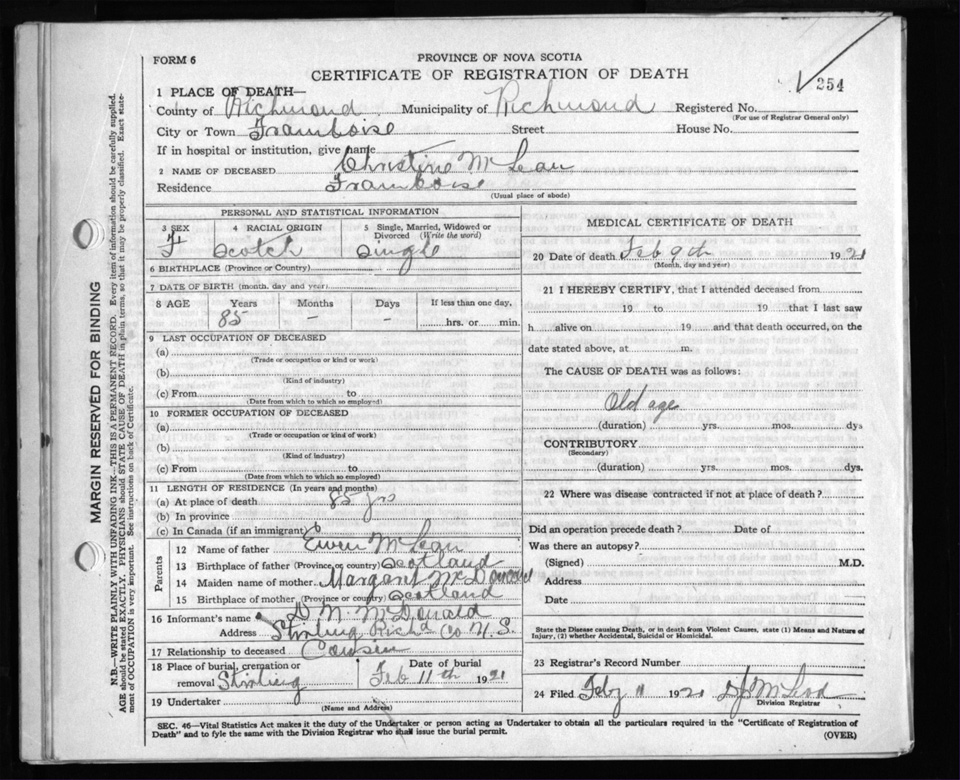 FORM 6
PROVINCE OF NOVA SCOTIA
CERTIFICATE OF REGISTRATION OF DEATH
254
1 PLACE OF DEATH—
County of Richmond Municipality of Richmond Registered No.
(For use of Registrar General only)
City or Town Framboise Street House No.
If in hospital or institution, give name
2 NAME OF DECEASED Christine McLean
Residence Framboise
(Usual place of abode)
PERSONAL AND STATISTICAL INFORMATION
3 SEX 4 RACIAL ORIGIN 5 Single, Married, Widowed or Divorced (Write the word)
F Scotch Single
6 BIRTHPLACE (Province or Country)
7 DATE OF BIRTH (month, day and year)
8 AGE Years Months Days If less than one day,
85 – – hrs. or min.
9 LAST OCCUPATION OF DECEASED
(a)
(Trade or occupation or kind of work)
(b)
(Kind of industry)
(c) From to
(Date from which to which so employed)
10 FORMER OCCUPATION OF DECEASED
(a)
(Trade or occupation or kind of work)
(b)
(Kind of industry)
(c) From to
(Date from which to which so employed)
11 LENGTH OF RESIDENCE (In years and months)
(a) At place of death 85 yrs
(b) In province
(c) In Canada (if an immigrant)
Parents
12 Name of father Ewen McLean
13 Birthplace of father (Province or country) Scotland
14 Maiden name of mother Margaret McDonald
15 Birthplace of mother (Province or country) Scotland
16 Informant's name D M McDonald
Address Stirling Richd Co N.S.
17 Relationship to deceased Cousin
18 Place of burial, cremation or removal Stirling Date of burial Feb 11th 1921
19 Undertaker
(Name and Address)
MEDICAL CERTIFICATE OF DEATH
20 Date of death Feb 9th 1921
(Month, day and year)
21 I HEREBY CERTIFY, that I attended deceased from
19 to 19 that I last saw
h alive on 19 and that death occurred, on the
date stated above, at m.
The CAUSE OF DEATH was as follows:
Old age
(duration) yrs. mos. dys
CONTRIBUTORY
(Secondary)
(duration) yrs. mos. dys.
22 Where was disease contracted if not at place of death?
Did an operation precede death? Date of
Was there an autopsy?
(Signed) M.D.
Address
Date
State the Disease causing Death, or in death from Violent Causes, state (1) Means and Nature of
Injury, (2) whether Accidental, Suicidal or Homicidal.
23 Registrar's Record Number
24 Filed Feby 11 1921 McLeod
Division Registrar
SEC. 46—Vital Statistics Act makes it the duty of the Undertaker or person acting as Undertaker to obtain all the particulars required in the "Certificate of Registration of
Death" and to fyle the same with the Division Registrar who shall issue the burial permit.
(OVER)
MARGIN RESERVED FOR BINDING
N.B.—WRITE PLAINLY WITH UNFADING INK—THIS IS A PERMANENT RECORD. Every item of information should be carefully supplied.
AGE should be stated EXACTLY. PHYSICIANS should STATE CAUSE OF DEATH in plain terms, so that it may be properly classified. Exact state-
ment of OCCUPATION is very important. See instructions on back of Certificate.